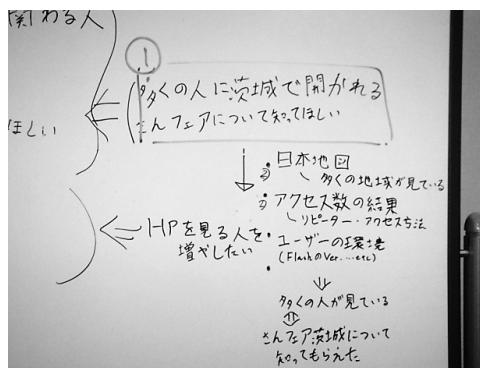 関わる人
ほしい
①
多くの人に茨城で開かれる
さんフェアについて知ってほしい
・日本地図
多くの地域が見ている
・アクセス数の結果
リピーター・アクセス方法
HPを見る人を
増やしたい
・ユーザーの環境
(FlashのVer.…etc)
・
多くの人が見ている
さんフェア茨城について
知ってもらえた